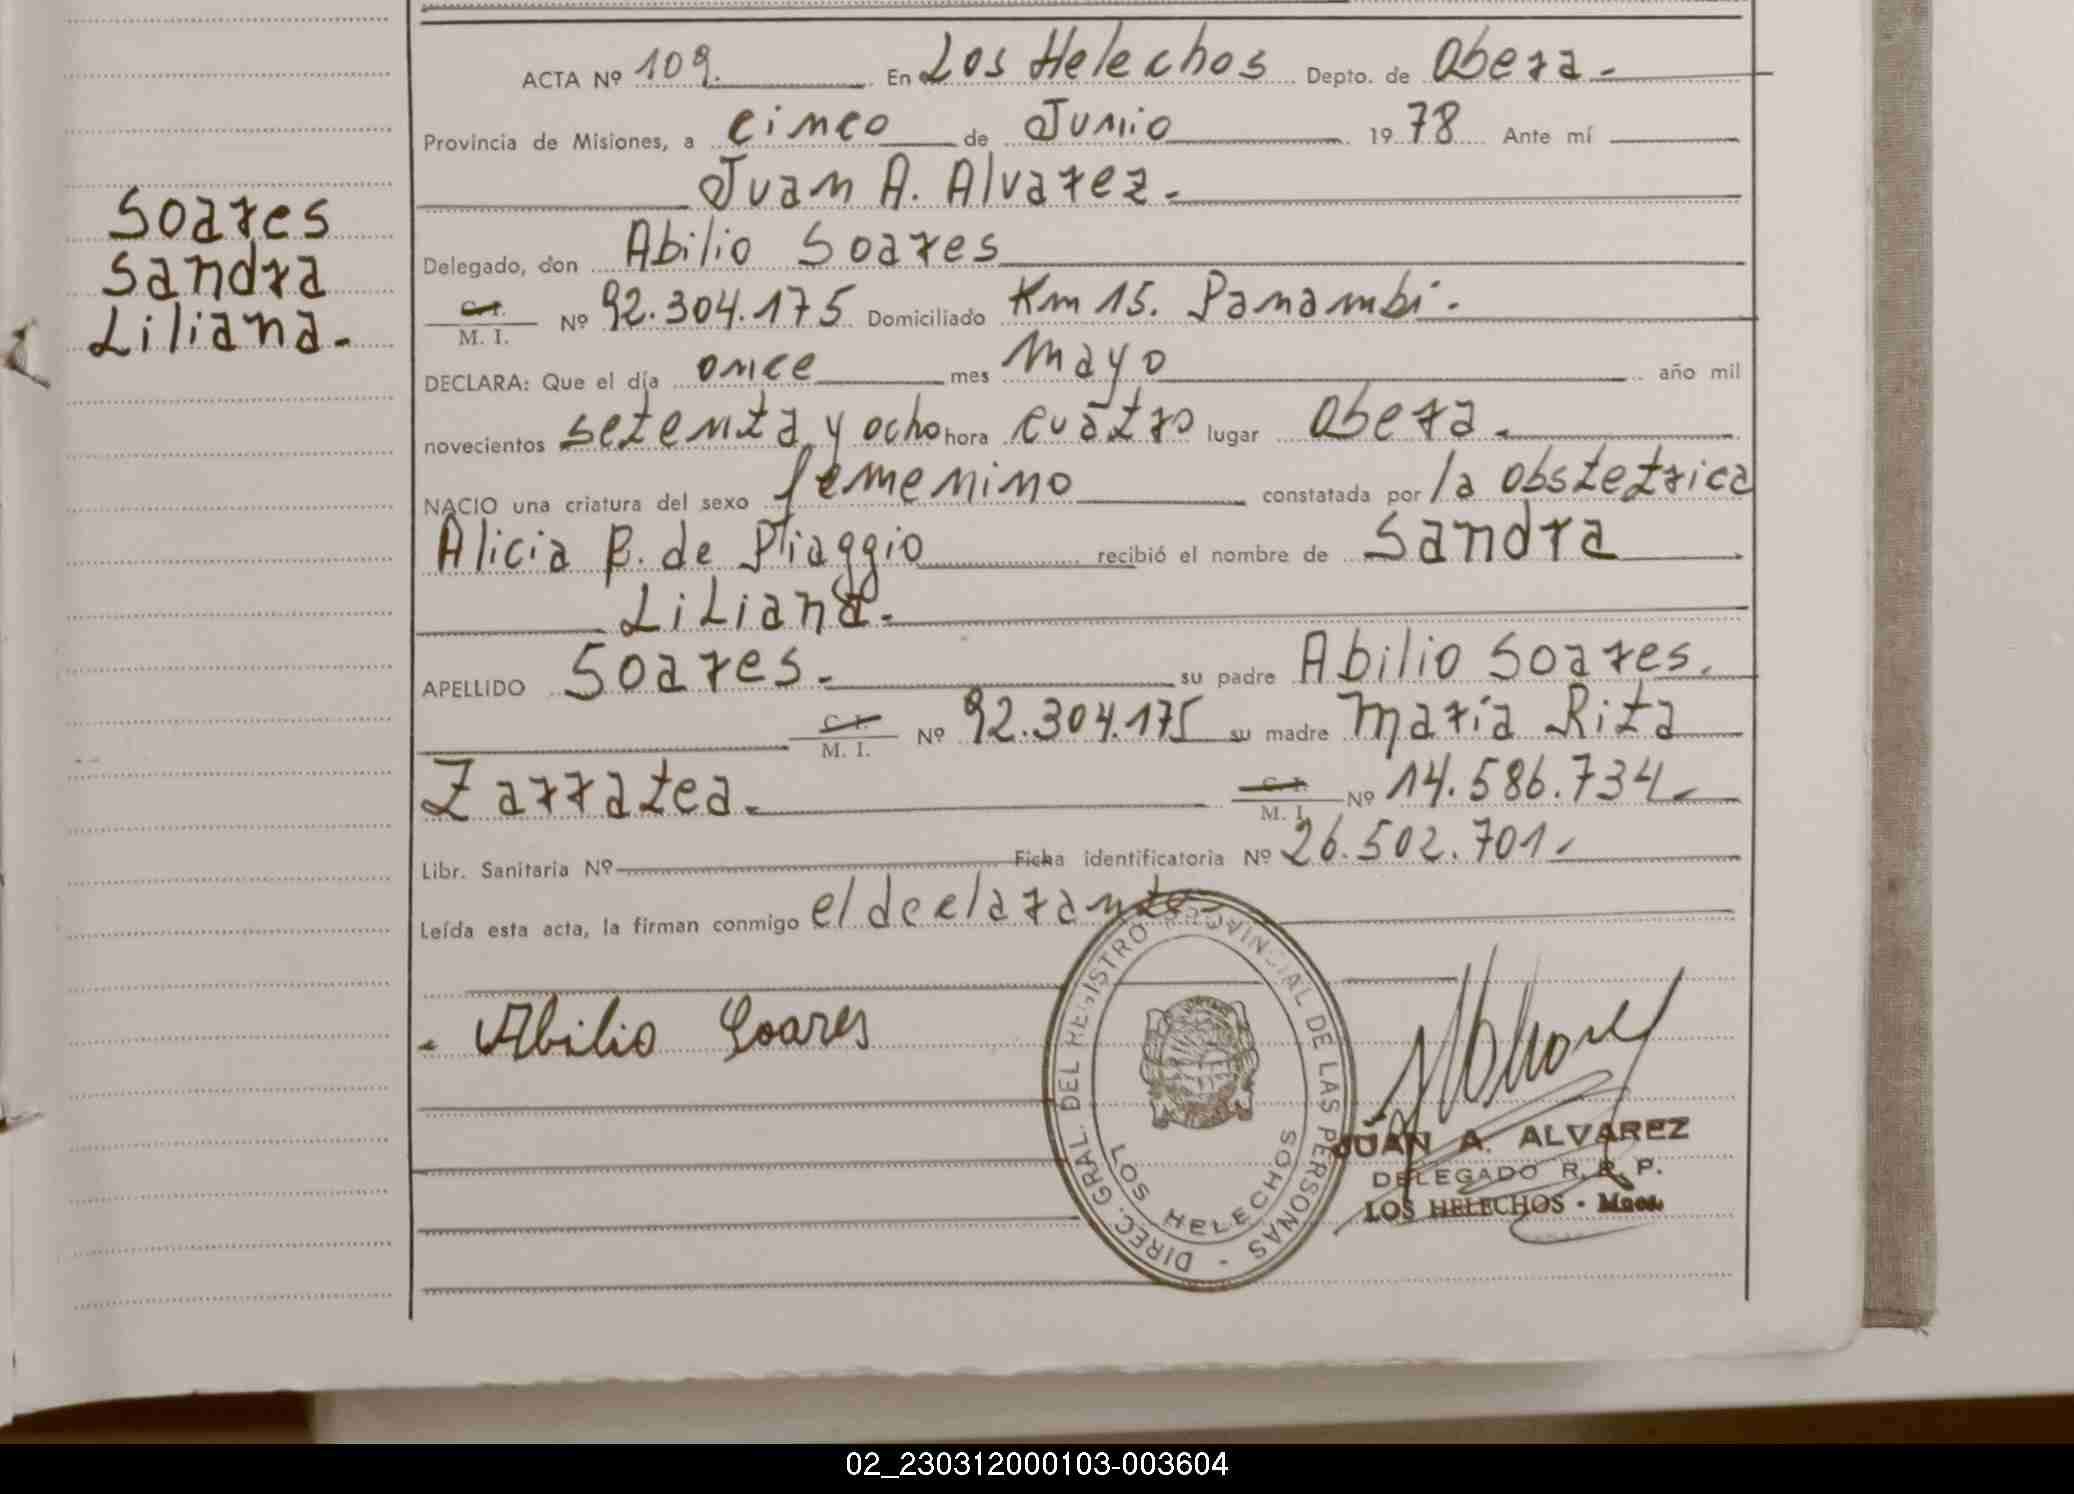 ACTA Nº 109. En Los Helechos Depto. de Obera.-
Provincia de Misiones, a cinco de Junio 1978 Ante mí
Juan A. Alvarez.-
Delegado, don Abilio Soares
C. I.
M. I. Nº 92.304.175 Domiciliado Km 15. Panambi.-
DECLARA: Que el día once mes Mayo año mil
novecientos setenta y ocho hora cuatro lugar Obera.-
NACIO una criatura del sexo femenino constatada por la obstetrica
Alicia B. de Piaggio recibió el nombre de Sandra
Liliana.-
APELLIDO Soares.- su padre Abilio Soares.
C. I.
M. I. Nº 92.304.175 su madre María Rita
Zarratea.- C. I.
M. I. Nº 14.586.734.-
Libr. Sanitaria Nº Ficha identificatoria Nº 26.502.701.-
Leída esta acta, la firman conmigo el declarante-
Soares
Sandra
Liliana.-
Abilio Soares
DIREC. GRAL. DEL REGISTRO PROVINCIAL DE LAS PERSONAS -
LOS HELECHOS
JUAN A. ALVAREZ
DELEGADO R. R. P.
LOS HELECHOS - Mnes.
02_230312000103-003604